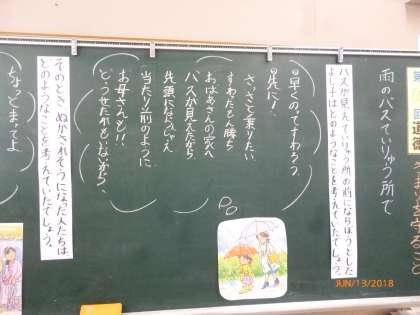 道徳
きまりを守ること
雨のバスていりゅう所で
バスが見えて、ていりゅう所の前にならぼうとした
よし子はどのようなことを考えていたでしょう。
早くのってすわろう。
先に!
さっさと乗りたい
すわったもん勝ち
おばあさんの家へ
バスが見えたから
先頭にならぶじゃん
当たり前のように
お母さんも!!
どうせだれもいないから、
そのとき、ぬかされそうになった人たちは、
どのようなことを考えていたでしょう。
ちょっとまってよ
JUN/13/2018